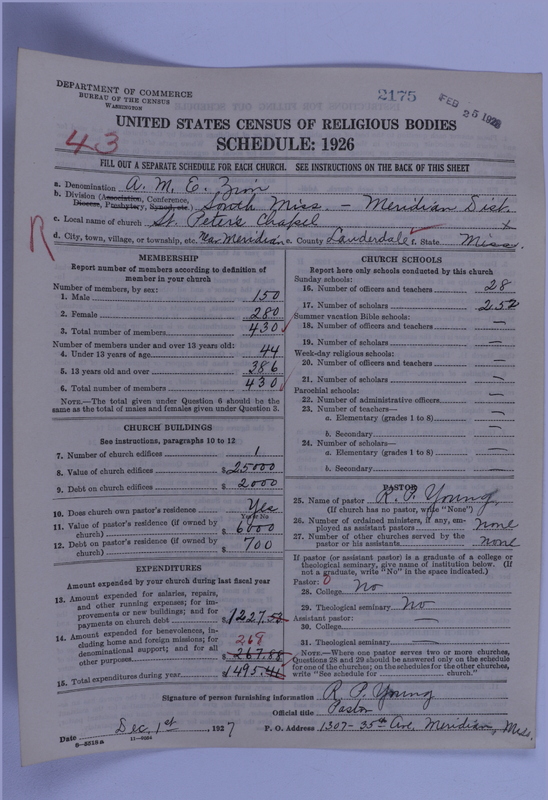 DEPARTMENT OF COMMERCE
BUREAU OF THE CENSUS
WASHINGTON
2175
FEB 25 1928
UNITED STATES CENSUS OF RELIGIOUS BODIES
43
SCHEDULE: 1926
FILL OUT A SEPARATE SCHEDULE FOR EACH CHURCH. SEE INSTRUCTIONS ON THE BACK OF THIS SHEET
a. Denomination A. M. E. Zion
b. Division (Association, Conference, Diocese, Presbytery, Synod, etc.) South Miss. - Meridian Dist.
c. Local name of church St. Peters Chapel
R
d. City, town, village, or township, etc. Near Meridian e. County Lauderdale f. State Miss.
MEMBERSHIP
Report number of members according to definition of
member in your church
Number of members, by sex:
1. Male 150
2. Female 280
3. Total number of members 430
Number of members under and over 13 years old:
4. Under 13 years of age 44
5. 13 years old and over 386
6. Total number of members 430
NOTE.—The total given under Question 6 should be
same as the total of males and females given under Question 3.
CHURCH BUILDINGS
See instructions, paragraphs 10 to 12
7. Number of church edifices 1
8. Value of church edifices $ 25000
9. Debt on church edifices $ 2000
10. Does church own pastor's residence Yes
Yes or No
11. Value of pastor's residence (if owned by
church) $ 6000
12. Debt on pastor's residence (if owned by
church) $ 700
EXPENDITURES
Amount expended by your church during last fiscal year
13. Amount expended for salaries, repairs,
and other running expenses; for im-
provements or new buildings; and for
payments on church debt $ 1227.53
14. Amount expended for benevolences, in-
cluding home and foreign missions; for
denominational support; and for all
other purposes 268
$ 267.88
15. Total expenditures during year $ 1495.41
CHURCH SCHOOLS
Report here only schools conducted by this church
Sunday schools:
16. Number of officers and teachers 28
17. Number of scholars 252
Summer vacation Bible schools:
18. Number of officers and teachers —
19. Number of scholars —
Week-day religious schools:
20. Number of officers and teachers —
21. Number of scholars —
Parochial schools:
22. Number of administrative officers —
23. Number of teachers—
a. Elementary (grades 1 to 8) —
b. Secondary —
24. Number of scholars—
a. Elementary (grades 1 to 8) —
b. Secondary —
PASTOR
25. Name of pastor R. P. Young
(If church has no pastor, write "None")
26. Number of ordained ministers, if any, em-
ployed as assistant pastors none
27. Number of other churches served by the
pastor or his assistants none
If pastor (or assistant pastor) is a graduate of a college or
theological seminary, give name of institution below. (If
not a graduate, write "No" in the space indicated.)
Pastor: 0
28. College No
29. Theological seminary No
Assistant pastor: —
30. College
31. Theological seminary —
NOTE.—Where one pastor serves two or more churches,
Questions 28 and 29 should be answered only on the schedule
for one of the churches; on the schedules for the other churches,
write "See schedule for church."
Signature of person furnishing information R. P. Young
Official title Pastor
Date Dec. 1st, 1927 P. O. Address 1307-35th Ave. Meridian, Miss.
8-5518a 11-9264